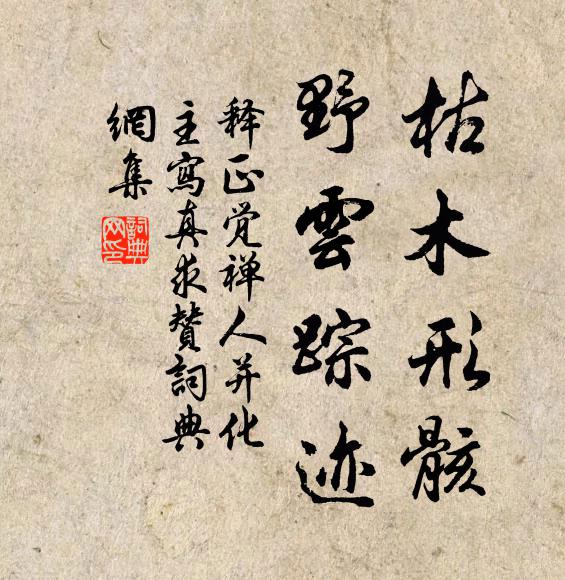 枯木形骸
野雲踪迹
释正覚禅人并化
主寫真求賛詞典
網集
詞典网印